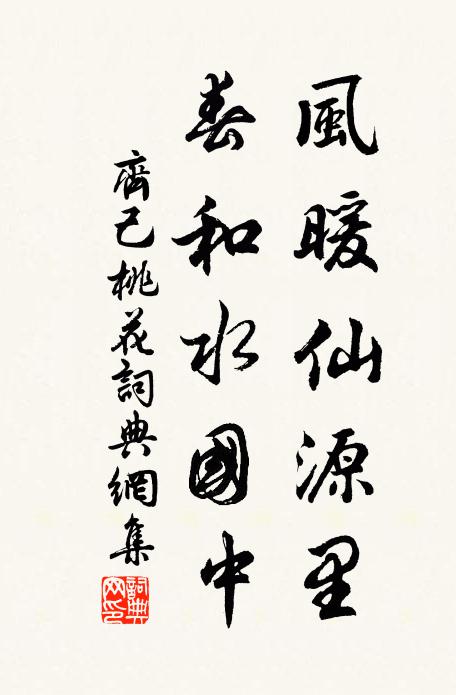 風暖仙源里
春和水國中
齊己桃花詞典網集
詞典网印